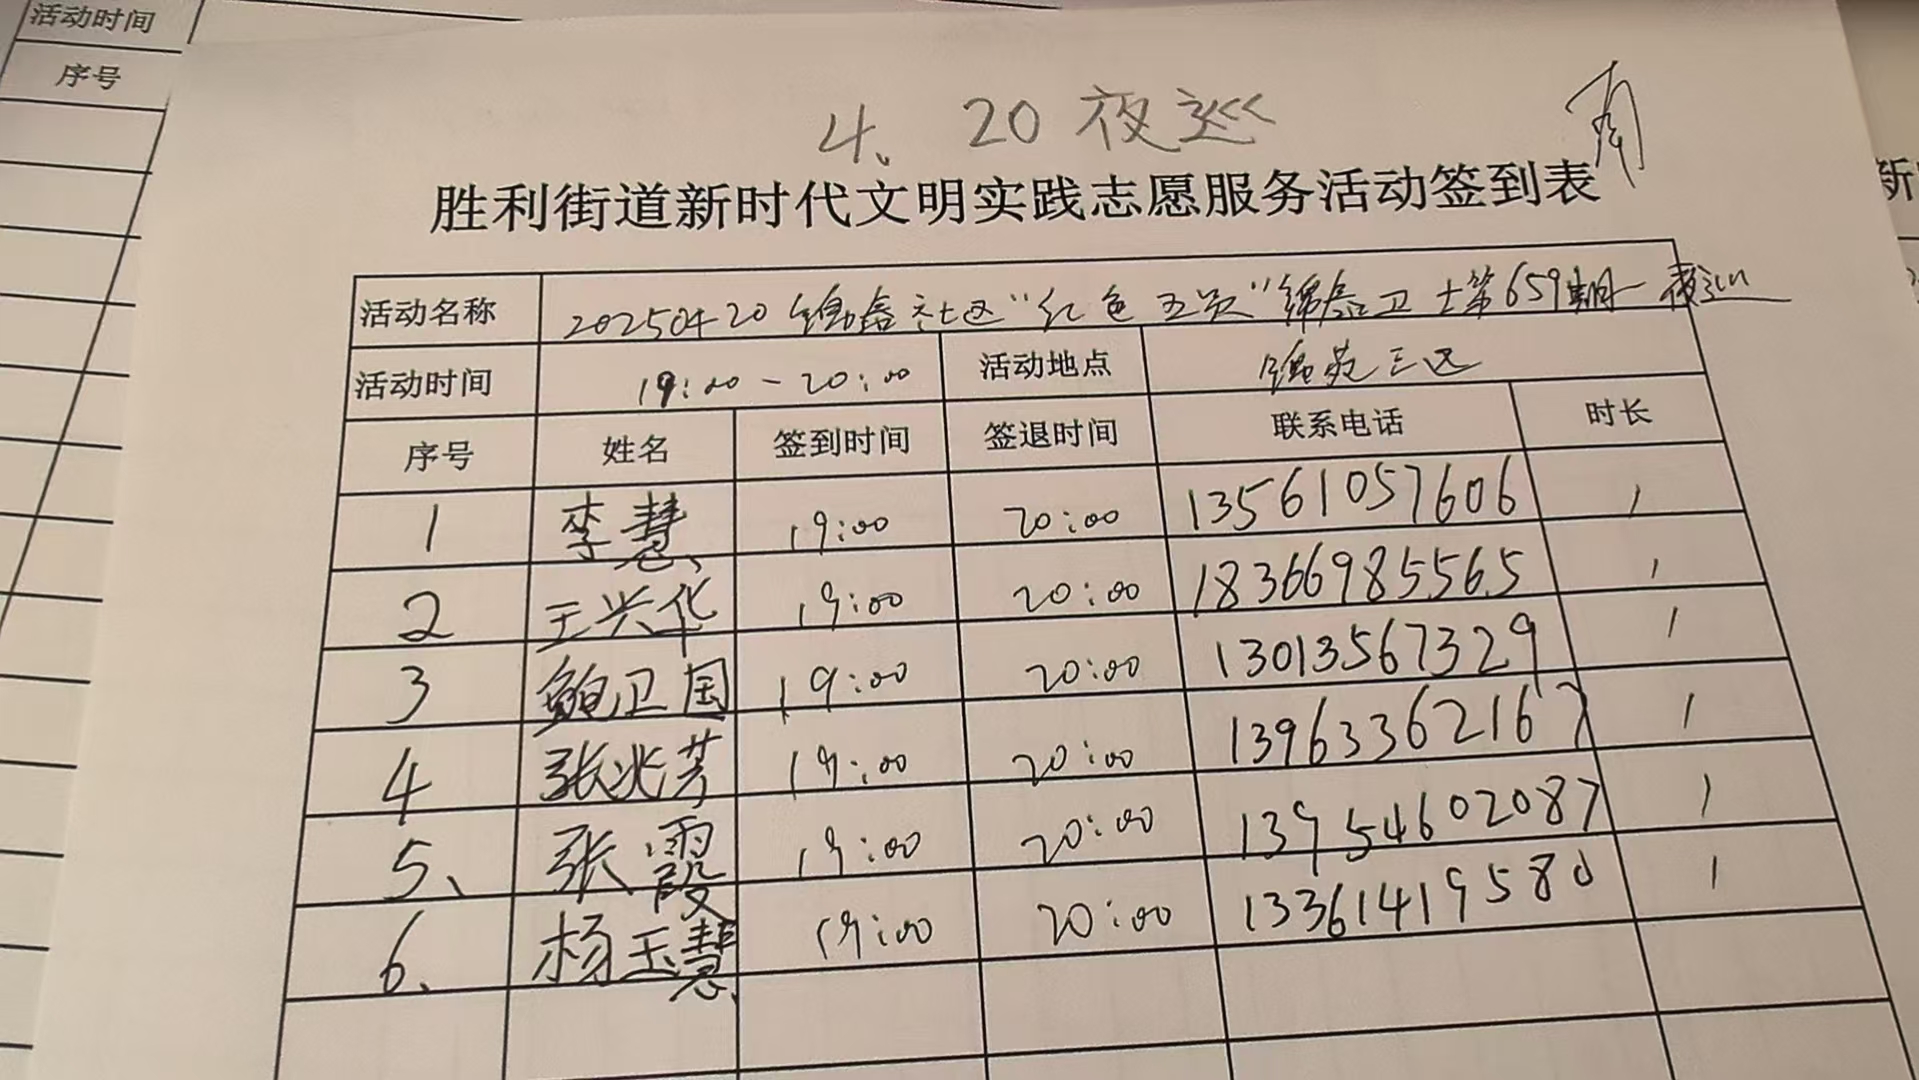 活动时间
序号
4、20夜巡
胜利街道新时代文明实践志愿服务活动签到表
新
活动名称 20250420锦岳社区“红色五员”锦岳卫士第659期一夜巡
活动时间 19:00-20:00 活动地点 锦苑三区
序号 姓名 签到时间 签退时间 联系电话 时长
1 李慧 19:00 20:00 13561057606 1
2 王兴华 19:00 20:00 18366985565 1
3 鲍卫国 19:00 20:00 13013567329 1
4 张兆芳 19:00 20:00 13963362167 1
5、 张霞 19:00 20:00 13954602087 1
6、 杨玉慧 19:00 20:00 13361419580 1